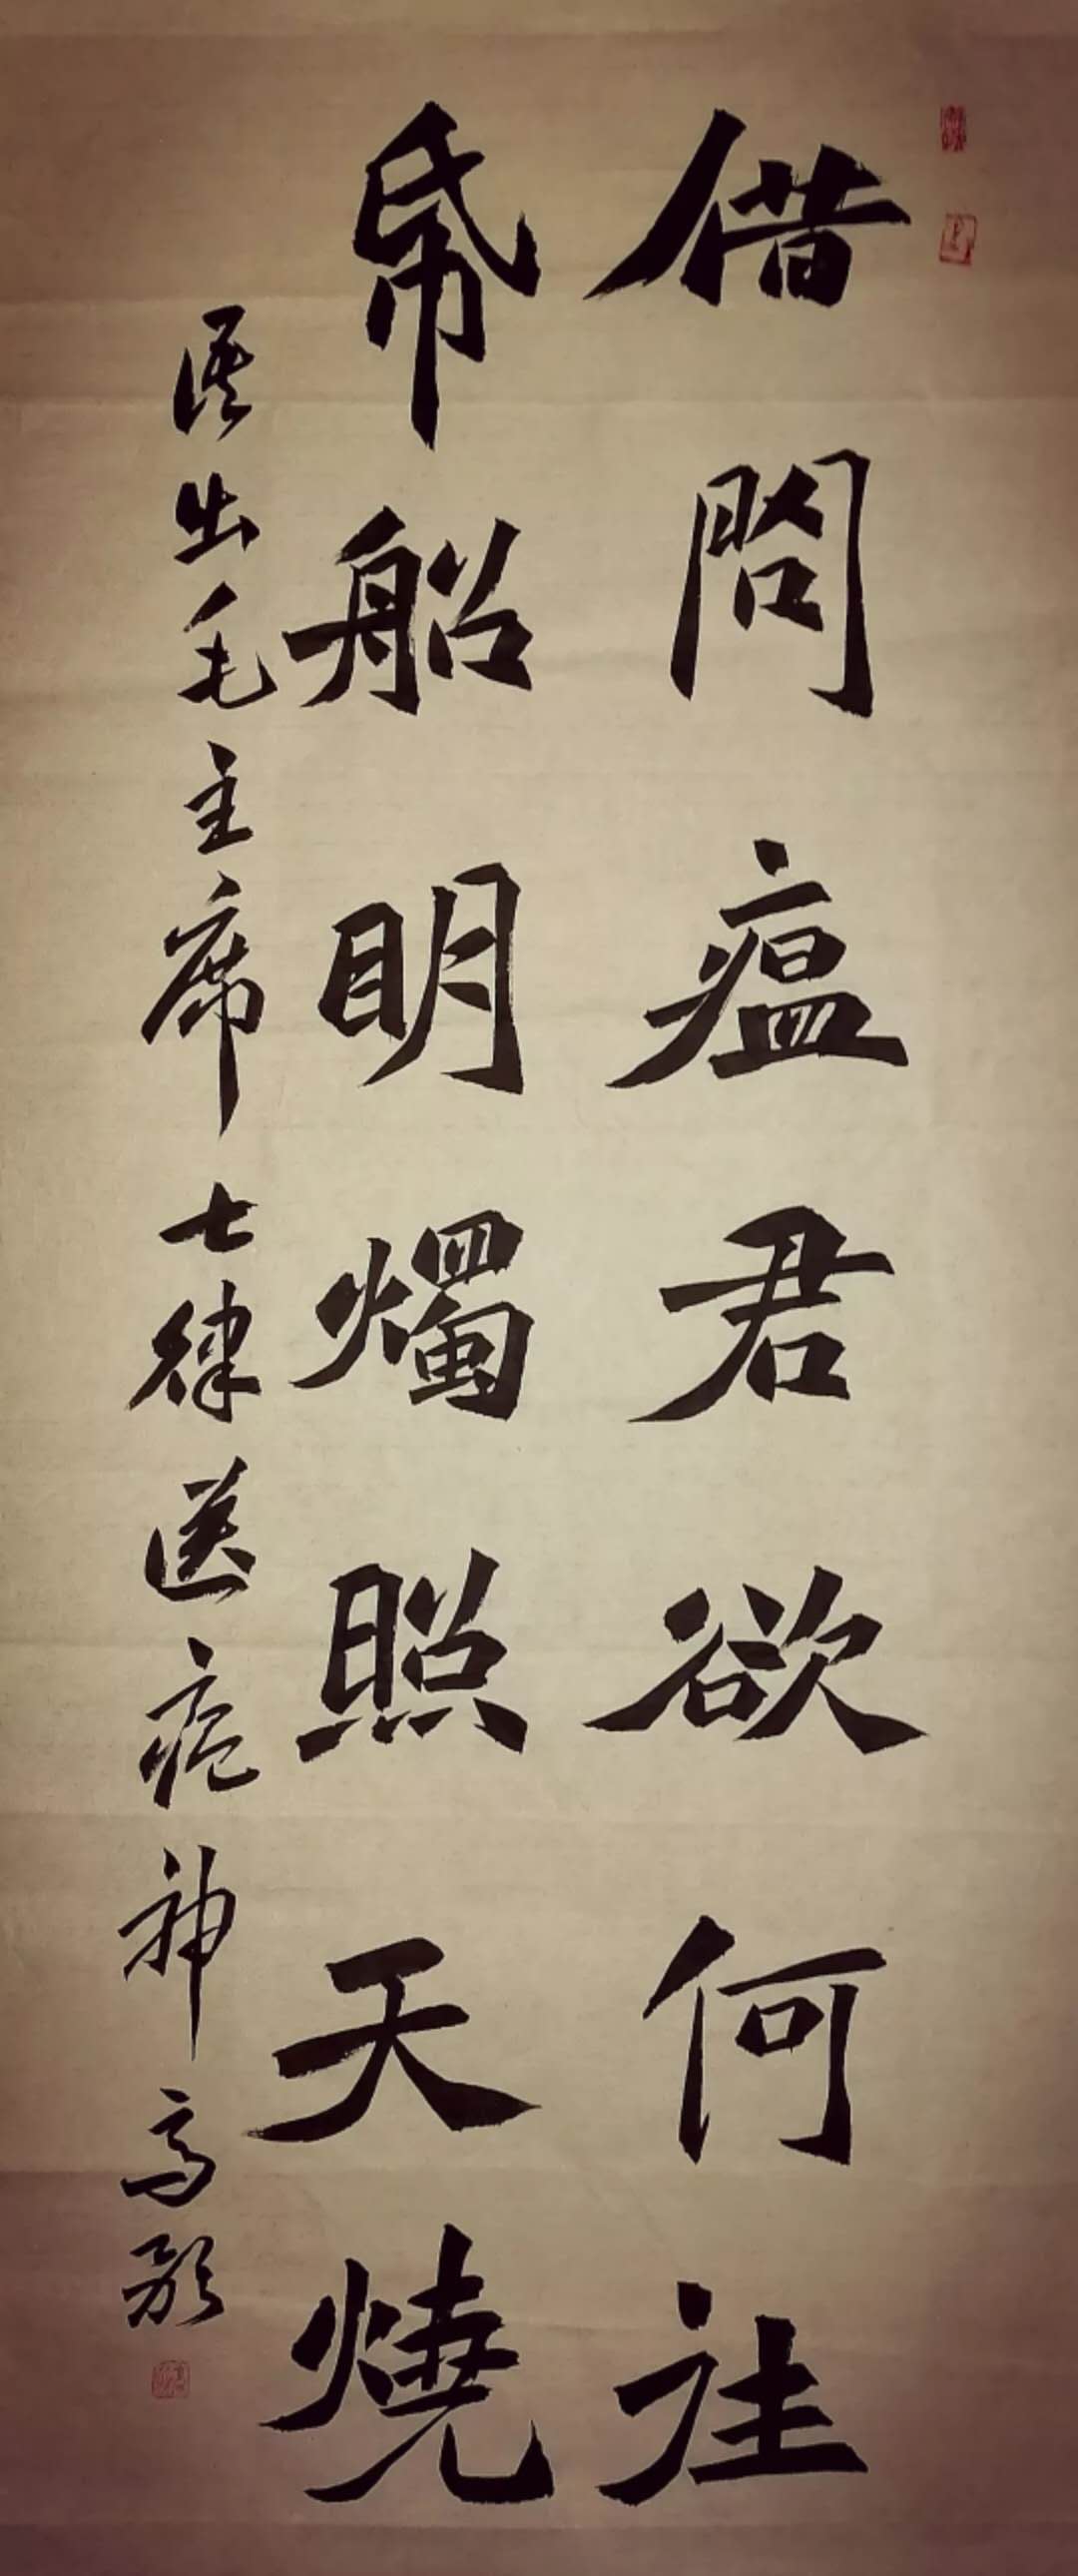 借問瘟君欲何往
帋船明燭照天燒
語出毛主席七律送瘟神 高